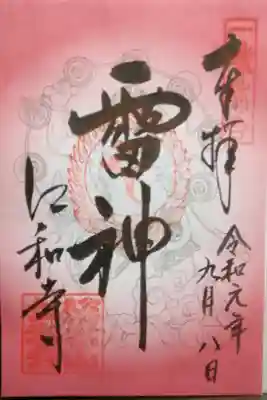 奉拝
令和元年
九月八日
雷神
江和寺